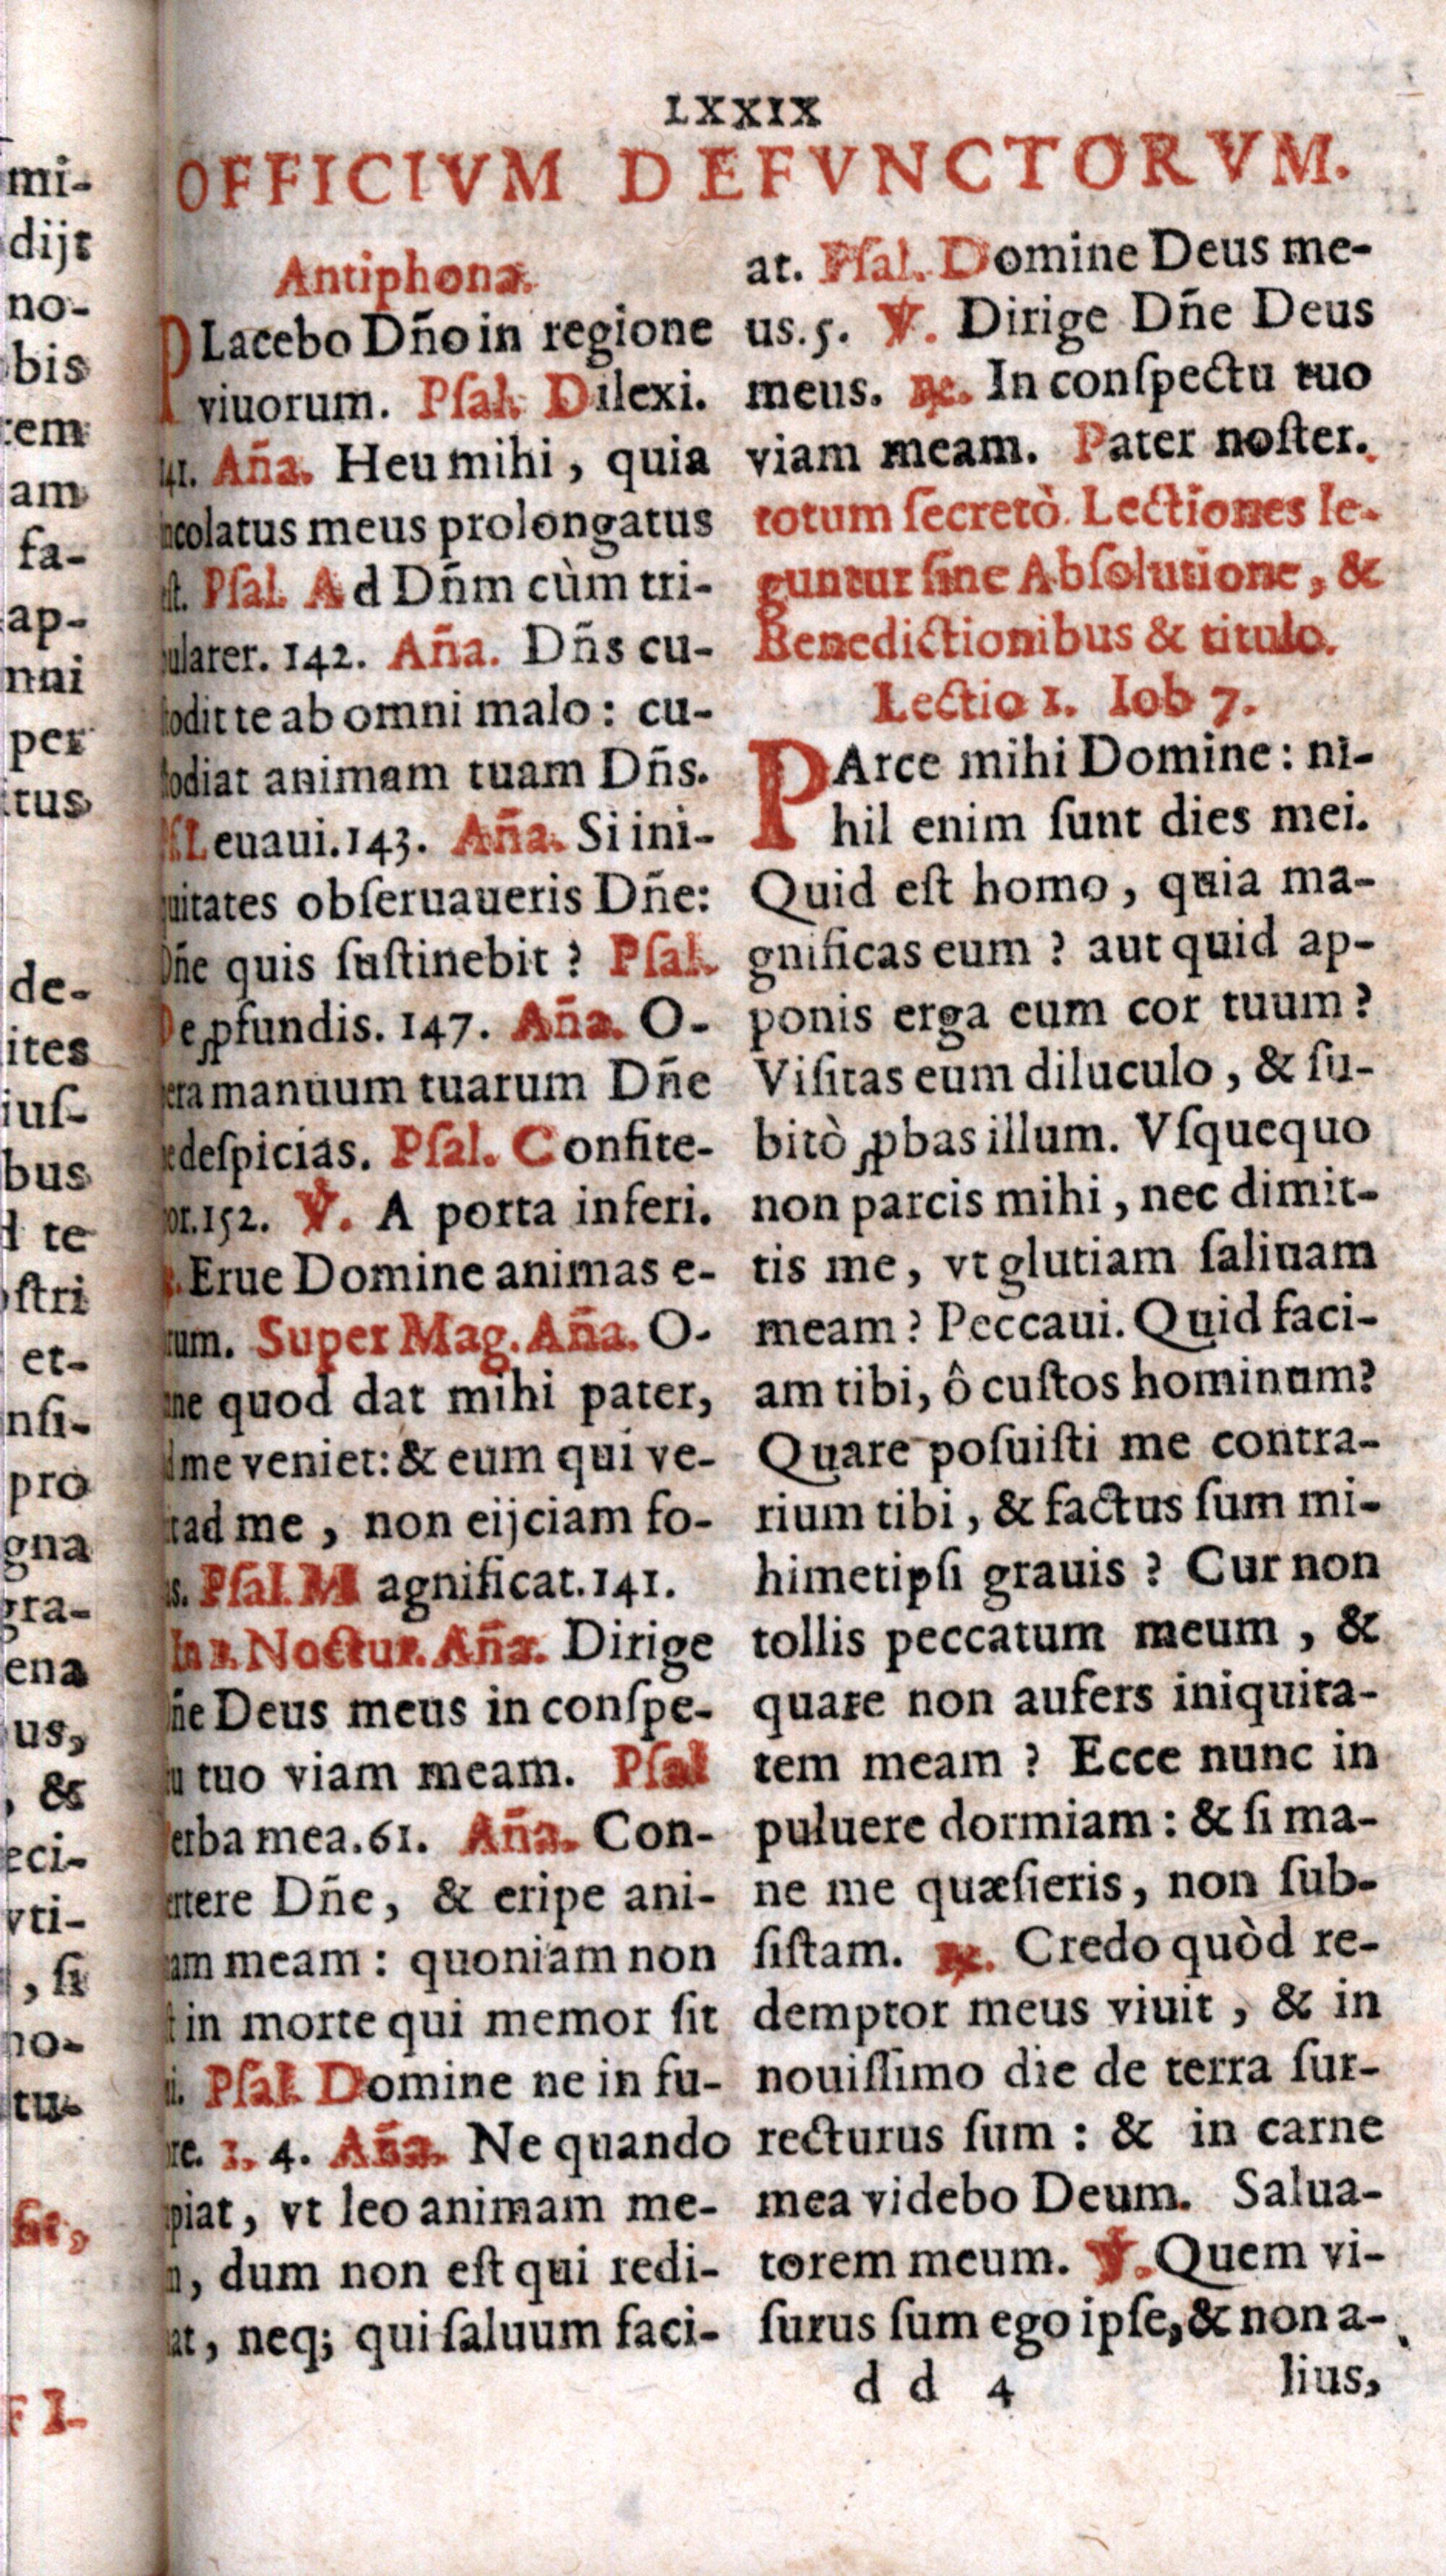 LXXIX
OFFICIVM DEFVNCTORVM.
Antiphona.
PLacebo Dño in regione
viuorum. Pſal. Dilexi.
141. Aña. Heu mihi, quia
incolatus meus prolongatus
eſt. Pſal. Ad Dñm cùm tri-
bularer. 142. Aña. Dñs cu-
ſtodit te ab omni malo: cu-
ſtodiat animam tuam Dñs.
Pſ Leuaui. 143. Aña. Si ini-
quitates obſeruaueris Dñe:
Dñe quis ſuſtinebit? Pſal.
De ꝓfundis. 147. Aña. O-
pera manuum tuarum Dñe
ne deſpicias. Pſal. Confite-
bor. 152. ℣. A porta inferi.
℟. Erue Domine animas e-
orum. Super Mag. Aña. O-
mne quod dat mihi pater,
ad me veniet: & eum qui ve-
nit ad me, non eijciam fo-
ras. Pſal. Magnificat. 141.
In 1. Noctur. Aña. Dirige
Dñe Deus meus in conſpe-
ctu tuo viam meam. Pſal
Verba mea. 61. Aña. Con-
uertere Dñe, & eripe ani-
mam meam: quoniam non
eſt in morte qui memor ſit
tui. Pſal. Domine ne in fu-
rore. 1. 4. Aña. Ne quando
rapiat, vt leo animam me-
am, dum non eſt qui redi-
mat, neq; qui ſaluum faci-
at. Pſal. Domine Deus me-
us. 5. ℣. Dirige Dñe Deus
meus. ℟. In conſpectu tuo
viam meam. Pater noſter.
totum ſecretò. Lectiones le-
guntur ſine Abſolutione, &
Benedictionibus & titulo.
Lectio 1. Iob 7.
PArce mihi Domine: ni-
hil enim ſunt dies mei.
Quid eſt homo, quia ma-
gnificas eum? aut quid ap-
ponis erga eum cor tuum?
Viſitas eum diluculo, & ſu-
bitò ꝓbas illum. Vſquequo
non parcis mihi, nec dimit-
tis me, vt glutiam ſaliuam
meam? Peccaui. Quid faci-
am tibi, ô cuſtos hominum?
Quare poſuiſti me contra-
rium tibi, & factus ſum mi-
himetipſi grauis? Cur non
tollis peccatum meum, &
quare non aufers iniquita-
tem meam? Ecce nunc in
puluere dormiam: & ſi ma-
ne me quæſieris, non ſub-
ſiſtam. ℟. Credo quòd re-
demptor meus viuit, & in
nouiſſimo die de terra ſur-
recturus ſum: & in carne
mea videbo Deum. Salua-
torem meum. ℣. Quem vi-
ſurus ſum ego ipſe, & non a-
d d 4 lius,